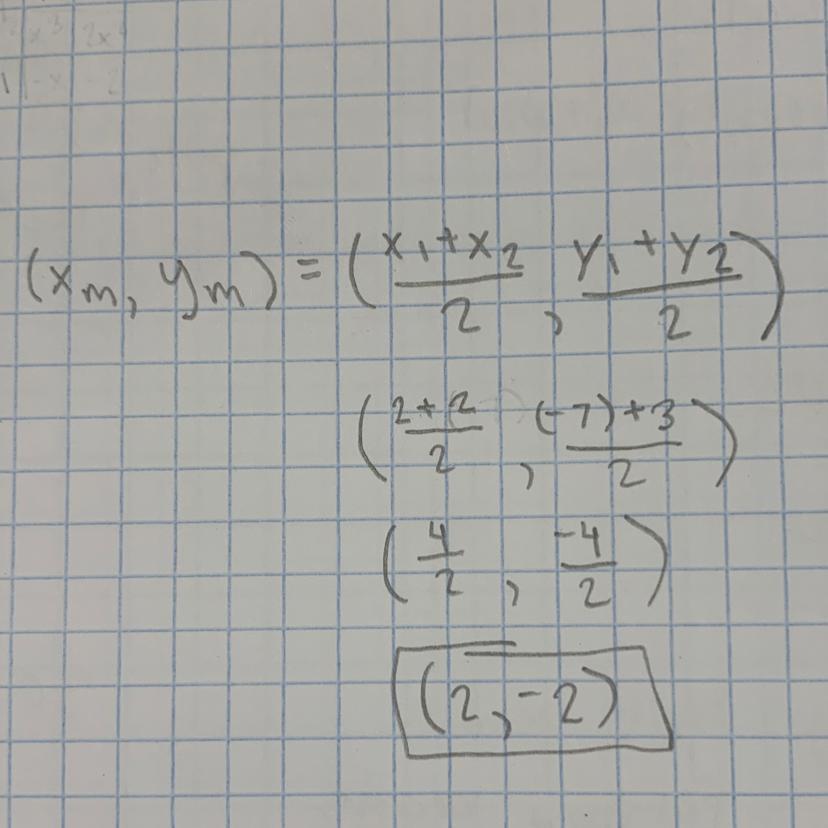 (x_m, y_m) = ((x_1 + x_2)/2, (y_1 + y_2)/2)
((2 + 2)/2, ((-7) + 3)/2)
(4/2, -4/2)
(2, -2)